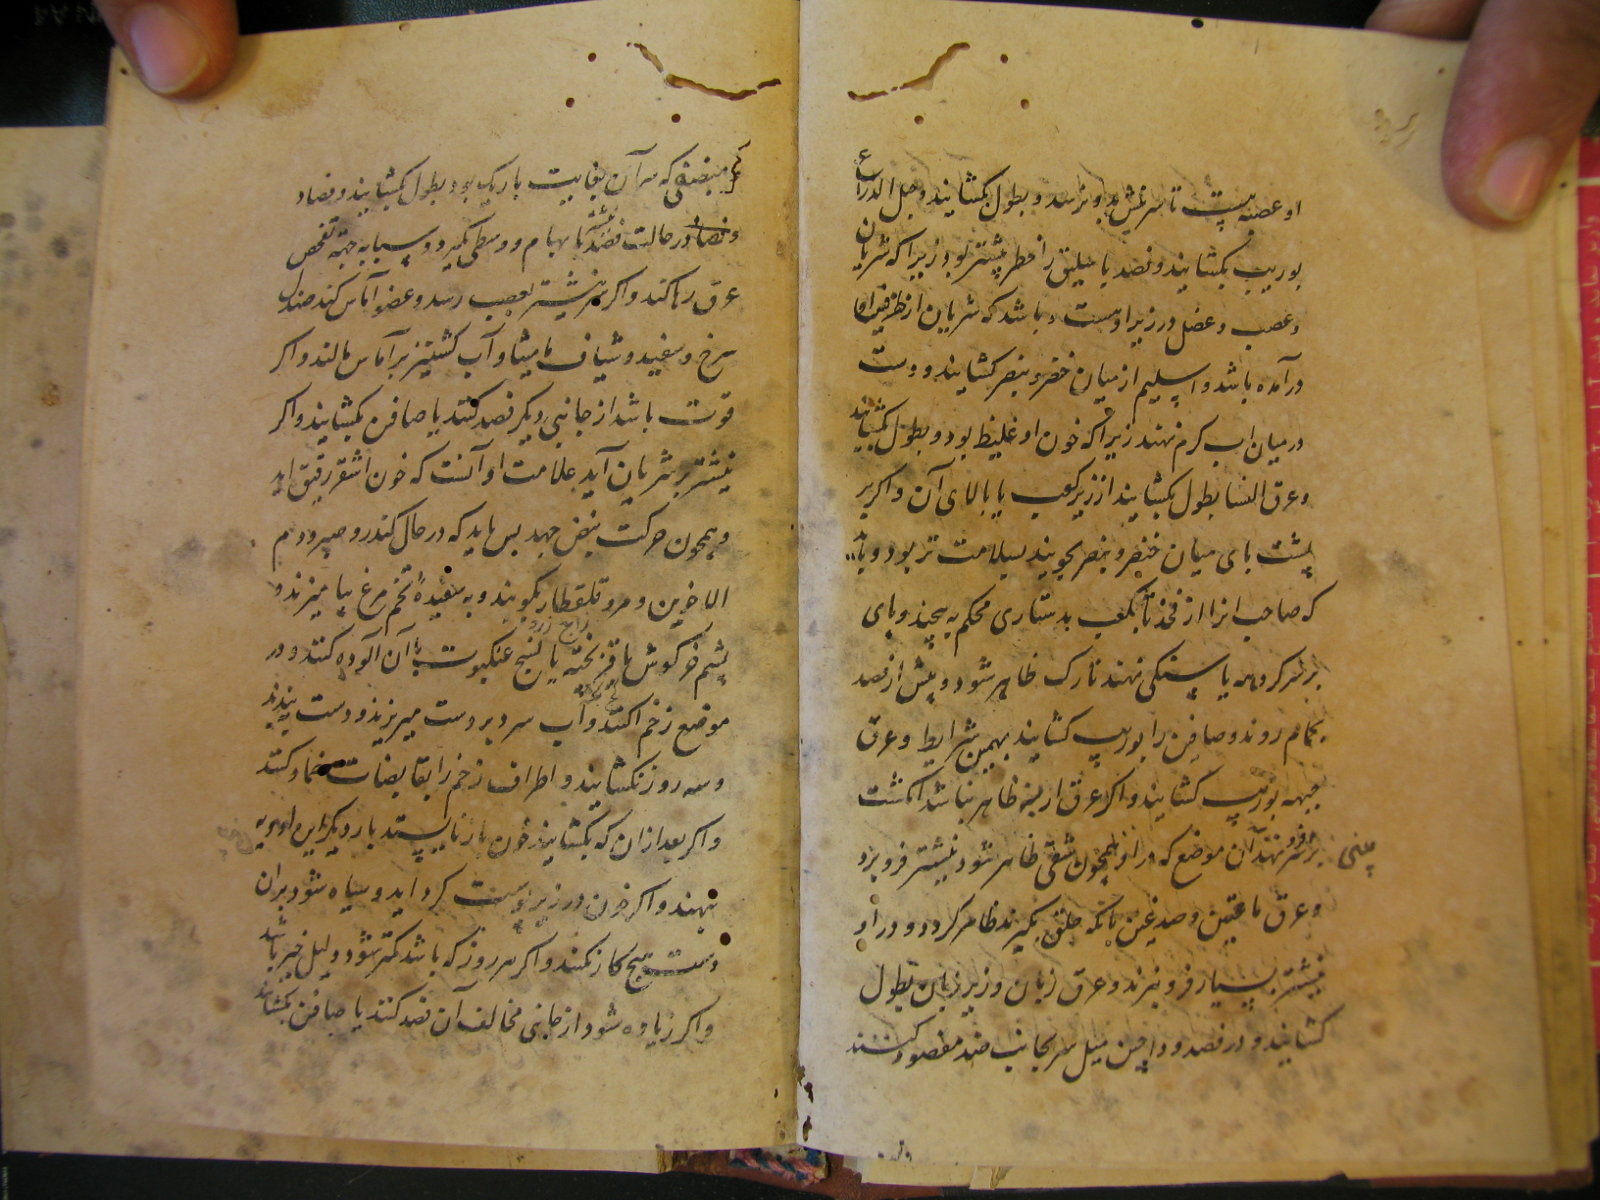 او عصبه‌ست تا سر نیش بدو نرسد و بطول بکشایند و حبل الذراع
بوریب بکشایند و فصد باسلیق را خطر بیشتر بود زیرا که شریان
و عصب و عضل در زیر او هست و باشد که شریان از طرفین او
درآمده باشد و اسیلم از میان خنصر و بنصر کشایند و دست
در میان اب کرم نهند زیرا که خون او غلیظ بود و بطول بکشایند
و عرق النسا بطول بکشایند از زیر کعب یا بالای آن و اکر بر
پشت بای میان خنصر و بنصر بجویند بسلامت تر بود و باید
که صاحب انرا از فخذ تا بکعب بدستاری محکم به پیچند و بای
بر سنکی نهند تا رک ظاهر شود و پیش از فصد
بحمام روند و صافن را بوریب کشایند بهمین شرایط و عرق
جبهه بوریب کشایند و اکر عرق ارنبه ظاهر نباشد انکشت
برو فرو نهند آن موضع که در او همچون شقی ظاهر شود نیشتر فرو برد
بینی
و عرق ماقین و صدغین بانکه حلق بکیرند ظاهر کردد و در او
نیشتر بسیار فرو نبرند و عرق زبان و زیر زبان بطول
کشایند و در فصد وداجین میل سر بجانب ضد مقصود کنند
مبضعی که سر آن بغایت باریک بود بطول بکشایند و فصاد
در حالت فصد نیشتر بابهام و وسطی بکیرد و سبابه جهة تفحص
عرق رها کند و اکر سر نیشتر بعصب رسد و عضو آماس کند صندل
سرخ و سفید و شیاف مامیثا و آب کشنیز بر آماس مالند و اکر
قوت باشد از جانبی دیکر فصد کنند یا صافن بکشایند و اکر
نیشتر بر شریان آید علامت او آنست که خون اشقر رقیق اید
و همچون حرکت نبض جهد بس باید که در حال کندر و صبر و دم
الاخوین و مر و قلقطار بکوبند و به سفیده تخم مرغ بیامیزند و
زاج زرد
پشم خرکوش یا قز پخته یا نسج عنکبوت بآن آلوده کنند و در
موضع زخم اکنند و آب سرد بر دست میریزند و دست ببندند
و سه روز نکشایند و اطراف زخم را بقابضات ضماد کنند
و اکر بعد از ان که بکشایند خون باز نایستد بار دیکر این ادویه
نهند و اکر خون در زیر پوست کرد اید و سیاه شود بران
دست هیچ کار نکنند و اکر هر روز که باشد کمتر شود دلیل خیر باشد
و اکر زیاده شود از جانبی مخالف آن فصد کنند یا صافن بکشایند